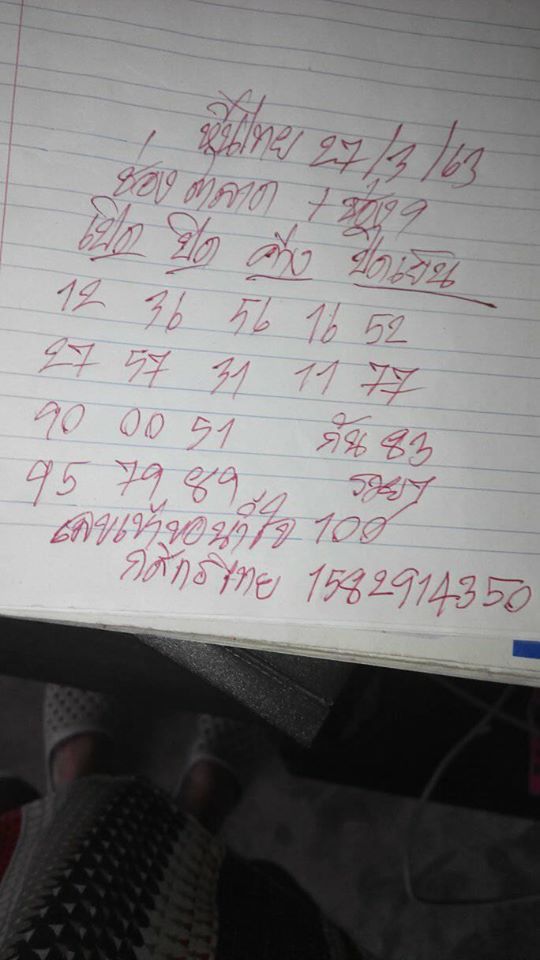 หุ้นไทย 27/3/63
ช่อง ตลาด + ช่อง 9
เปิด ปิด ค้าง ปิดเย็น
12 36 56 16 52
27 57 31 11 77
90 00 51 กัน 83
95 79 89
เลขเข้าขอน้ำใจ 100
กสิกรไทย 1582914350